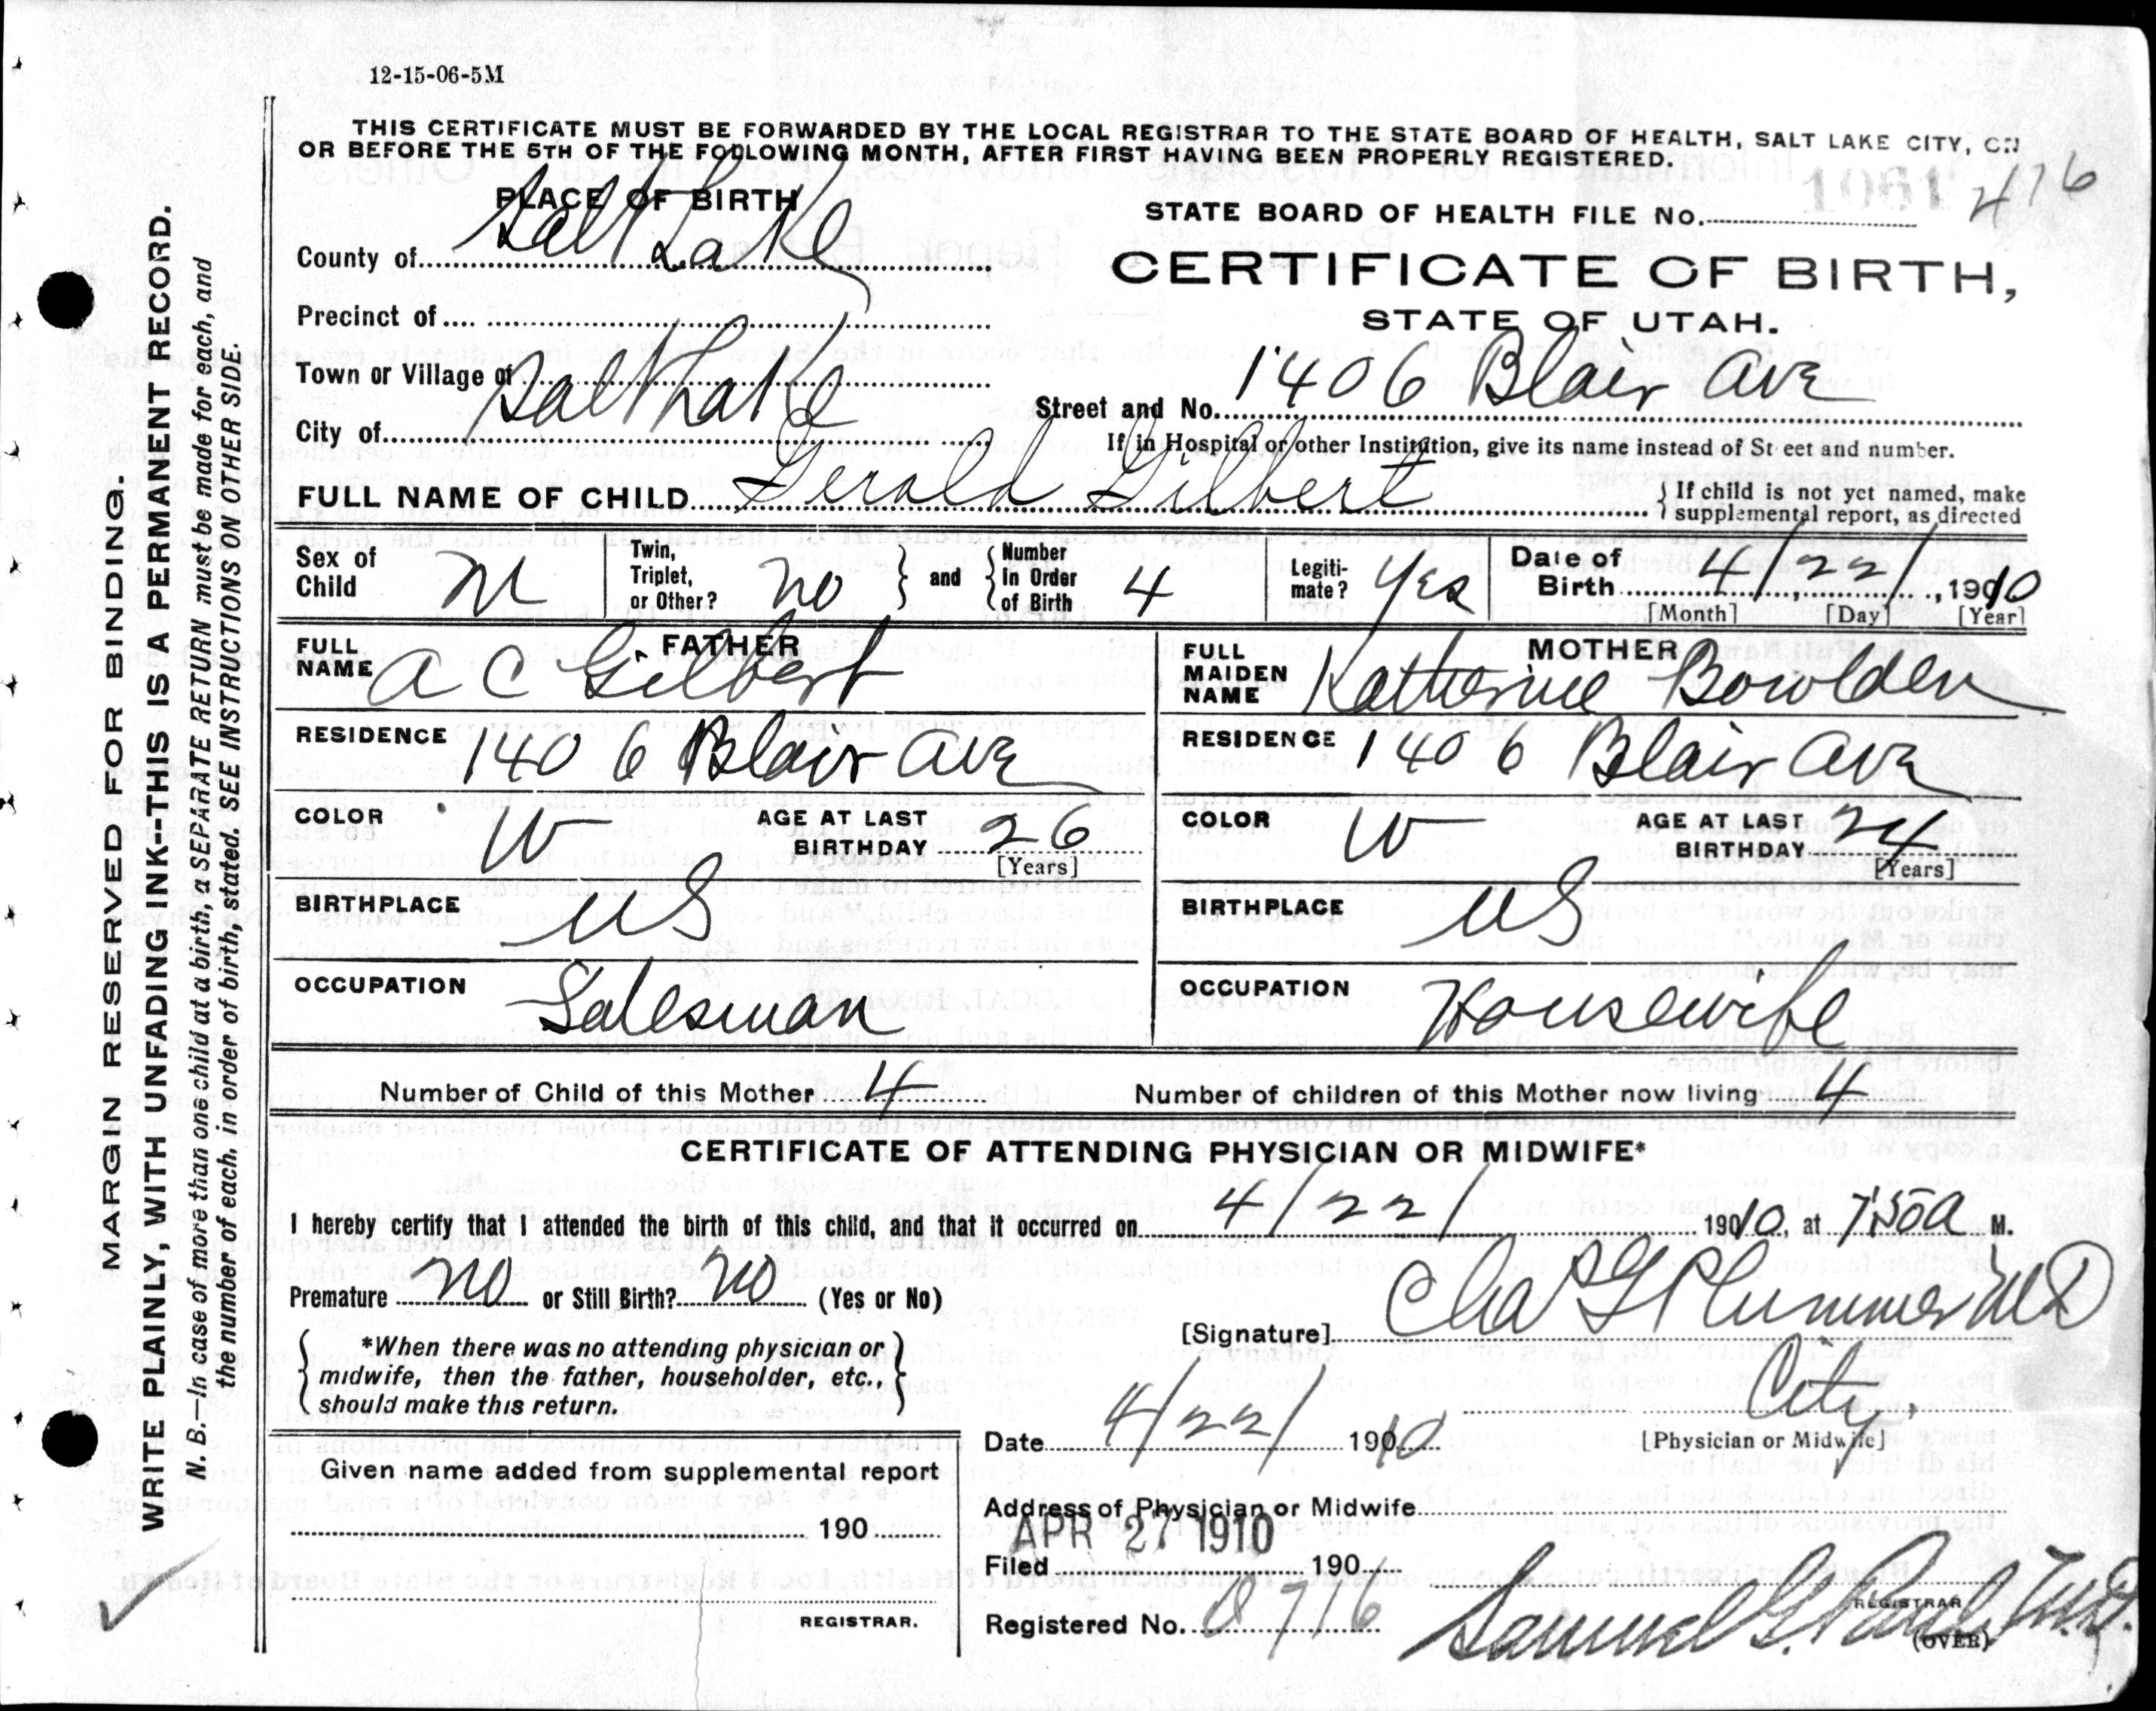 12-15-06-5M
THIS CERTIFICATE MUST BE FORWARDED BY THE LOCAL REGISTRAR TO THE STATE BOARD OF HEALTH, SALT LAKE CITY, ON
OR BEFORE THE 5TH OF THE FOLLOWING MONTH, AFTER FIRST HAVING BEEN PROPERLY REGISTERED.
PLACE OF BIRTH
STATE BOARD OF HEALTH FILE No. 1061 476
County of Salt Lake
CERTIFICATE OF BIRTH,
STATE OF UTAH.
Precinct of
Town or Village of
City of Salt Lake
Street and No. 1406 Blair Ave
If in Hospital or other Institution, give its name instead of St eet and number.
FULL NAME OF CHILD Gerald Gilbert
If child is not yet named, make
supplemental report, as directed
Sex of Child M
Twin, Triplet, or Other? no
and Number in Order of Birth 4
Legiti-mate? Yes
Date of Birth 4/22/, 1910
[Month] [Day] [Year]
FATHER
FULL NAME A C Gilbert
RESIDENCE 1406 Blair Ave
COLOR W AGE AT LAST BIRTHDAY 26
[Years]
BIRTHPLACE US
OCCUPATION Salesman
MOTHER
FULL MAIDEN NAME Katherine Bowlden
RESIDENCE 1406 Blair Ave
COLOR W AGE AT LAST BIRTHDAY 24
[Years]
BIRTHPLACE US
OCCUPATION Housewife
Number of Child of this Mother 4 Number of children of this Mother now living 4
CERTIFICATE OF ATTENDING PHYSICIAN OR MIDWIFE*
I hereby certify that I attended the birth of this child, and that it occurred on 4/22/ 1910, at 7:50 a M.
Premature no or Still Birth? no (Yes or No)
*When there was no attending physician or
midwife, then the father, householder, etc.,
should make this return.
[Signature] Chas G Plummer MD
City.
[Physician or Midwife]
Date 4/22/ 1910
Given name added from supplemental report
190
REGISTRAR.
Address of Physician or Midwife
APR 27 1910
Filed 190
Registered No. 0716
Samuel G. Paul, M.D.
REGISTRAR
(OVER)
MARGIN RESERVED FOR BINDING.
WRITE PLAINLY, WITH UNFADING INK--THIS IS A PERMANENT RECORD.
N. B.—In case of more than one child at a birth, a SEPARATE RETURN must be made for each, and
the number of each, in order of birth, stated. SEE INSTRUCTIONS ON OTHER SIDE.